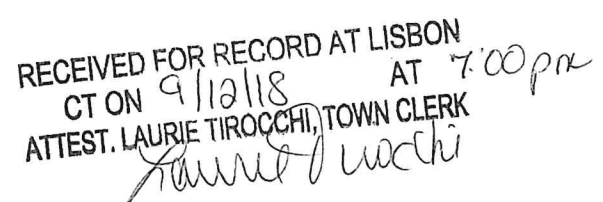 RECEIVED FOR RECORD AT LISBON
CT ON 9/12/18 AT 7:00 pm
ATTEST. LAURIE TIROCCHI, TOWN CLERK
Laurie Tirocchi